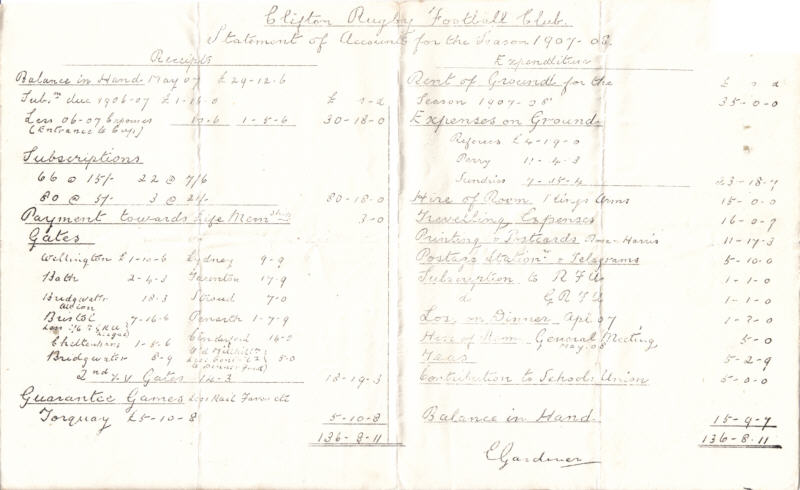 Clifton Rugby Football Club.
Statement of Accounts for the Season 1907-08.
Receipts
Balance in Hand May 07 £29-12-6
Subns due 1906-07 £1-16-0 £ s-d
Less 06-07 Expenses 10-6 1-5-6 30-18-0
(Entrance to Cup)
Subscriptions
66 @ 15/- 22 @ 7/6
80 @ 5/- 3 @ 2/- 80-18-0
Payment towards Life Memship 3-0
Gates
Wellington £1-10-6 Lydney 9-9
Bath 2-4-3 Taunton 17-9
Bridgwater 18-3 Stroud 7-0
Albion
Bristol 7-16-6 Penarth 1-7-9
Cheltenham 1-5-6 Cinderford
Bridgwater 8-9 Old 5-0
2nd XV Gates 14-3 18-19-3
Guarantee Games Less Rail Fares etc
Torquay £5-10-8 5-10-8
136-8-11
Expenditure
Rent of Ground for the £ s d
Season 1907-08 35-0-0
Expenses on Ground.
Referees £4-19-0
Perry 11-4-3
Sundries 7-15-4 23-18-7
Hire of Room Kings Arms 15-0-0
Travelling Expenses 16-0-7
Printing & Postcards Harris 11-17-3
Postage Station & Telegrams 5-10-0
Subscription to R F U 1-1-0
do G R F U 1-1-0
Loss on Dinner Apl 07
Hire of Room General Meeting 5-0
May. 08
Teas 5-2-9
Contribution to Schools Union 5-0-0
Balance in Hand. 15-9-7
136-8-11
E Gardiner